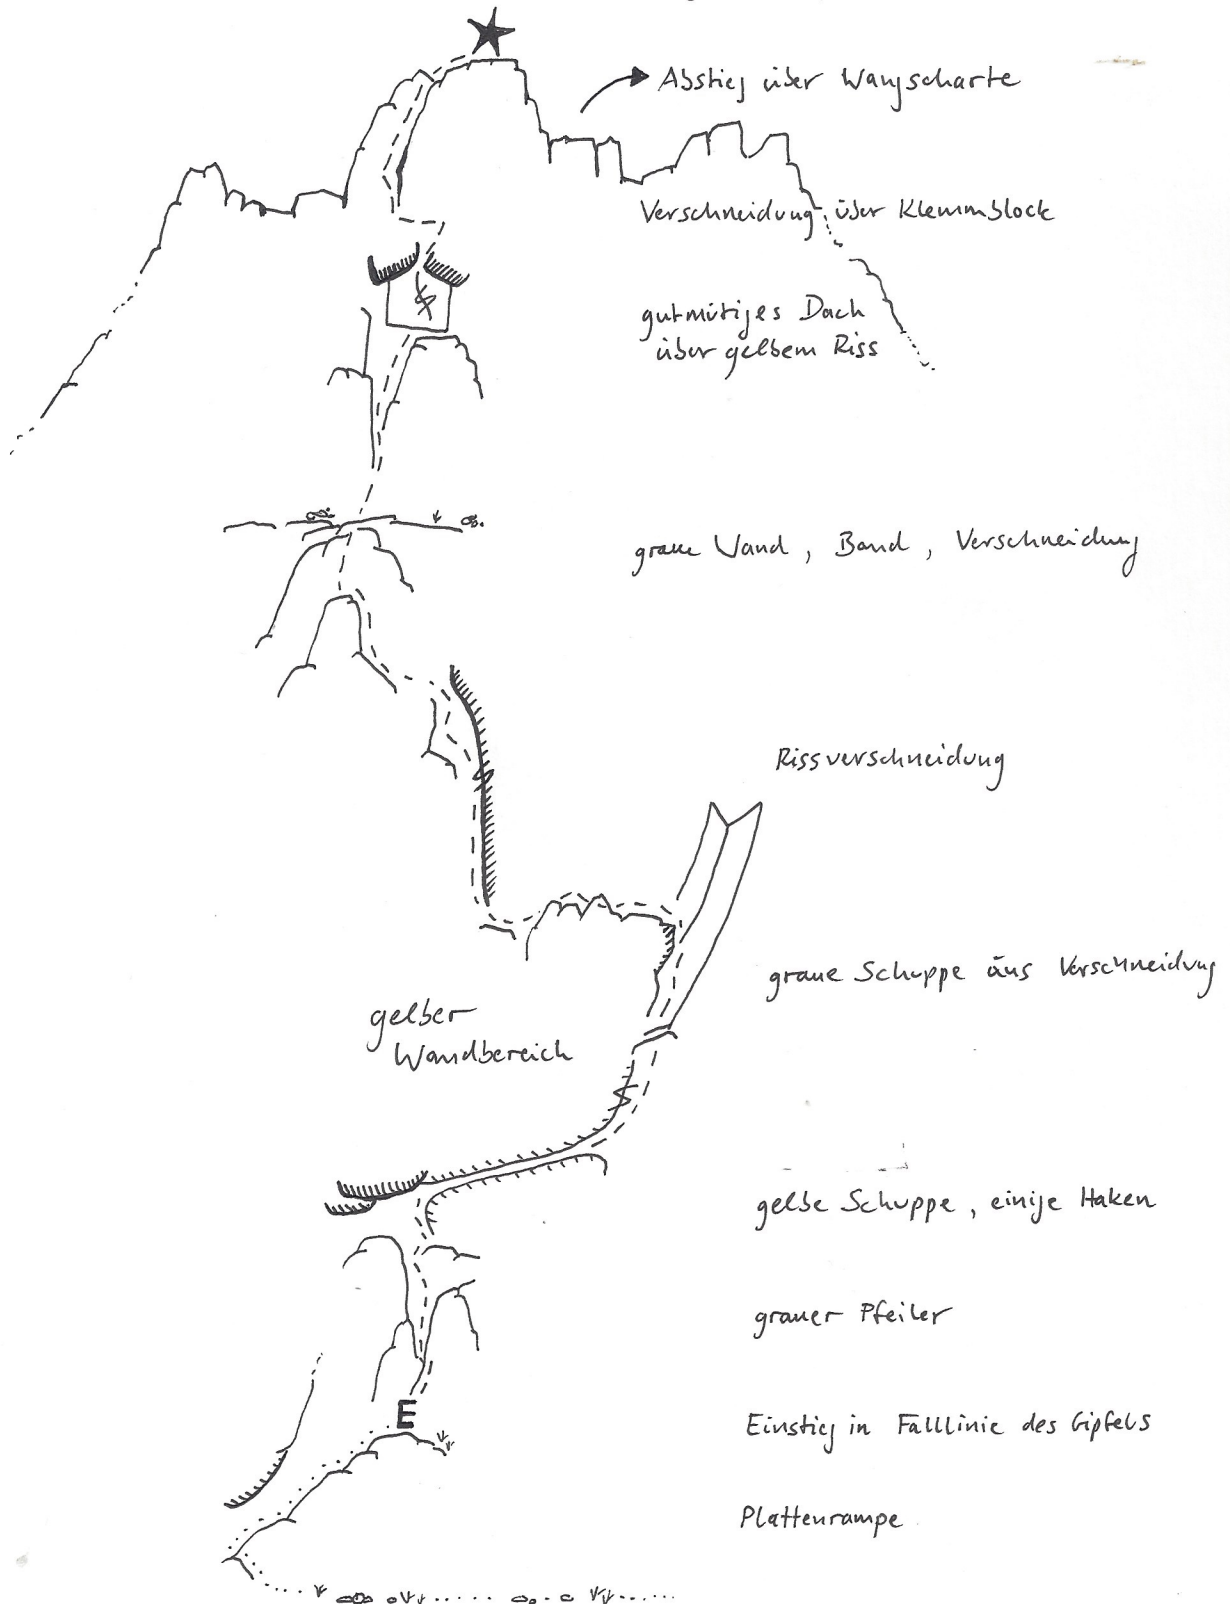 Abstieg über Wangscharte
Verschneidung über Klemmblock
gutmütiges Dach
über gelbem Riss
graue Wand, Band, Verschneidung
Rissverschneidung
graue Schuppe ins Verschneidung
gelber
Wandbereich
gelbe Schuppe, einige Haken
grauer Pfeiler
E
Einstieg in Falllinie des Gipfels
Plattenrampe